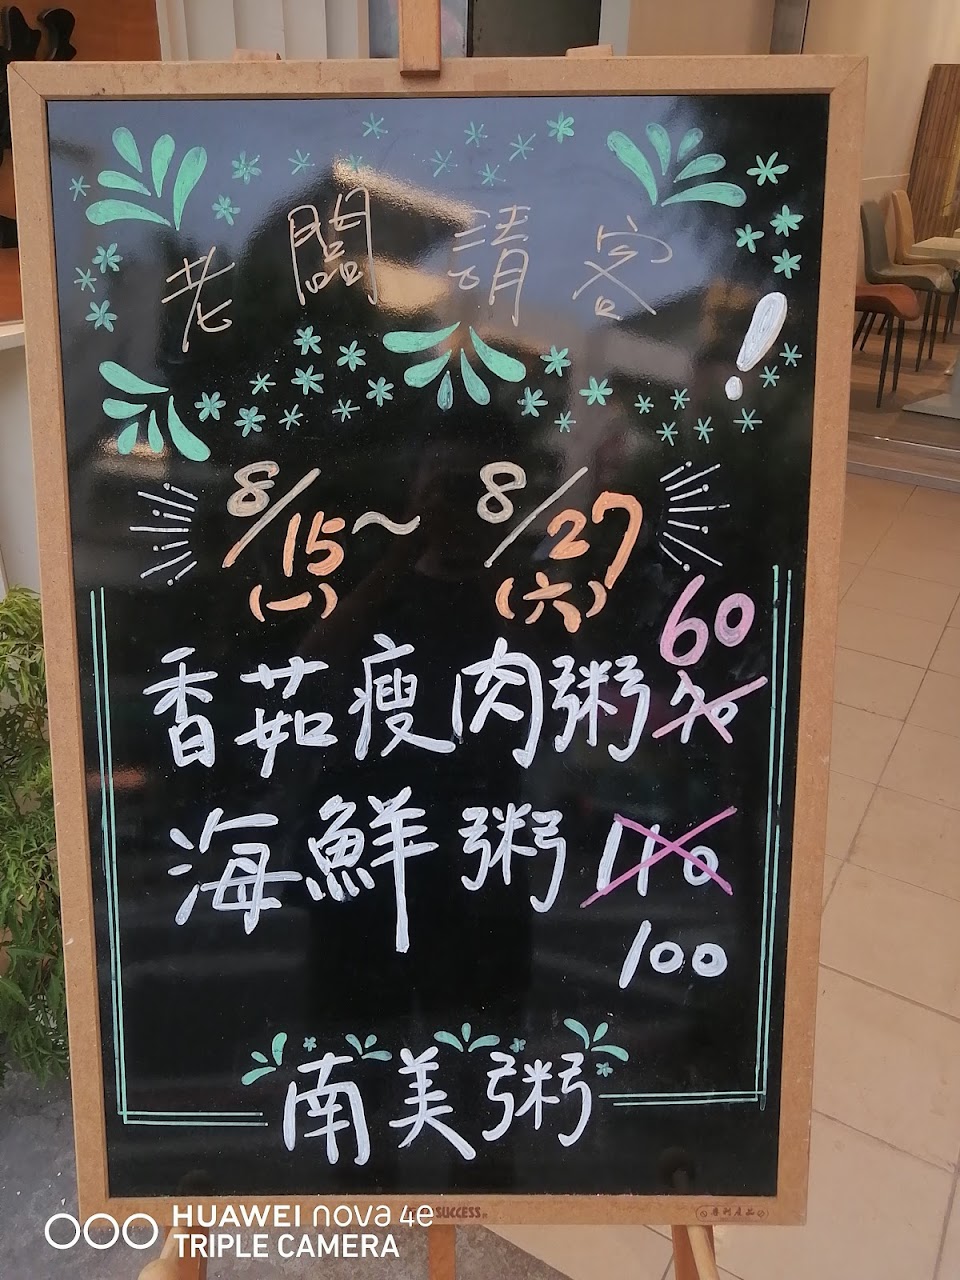 老闆請客!
8/15~8/27
(一) (六)
60
香茹瘦肉粥70
海鮮粥110
100
南美粥
SUCCESS
HUAWEI nova 4e
TRIPLE CAMERA